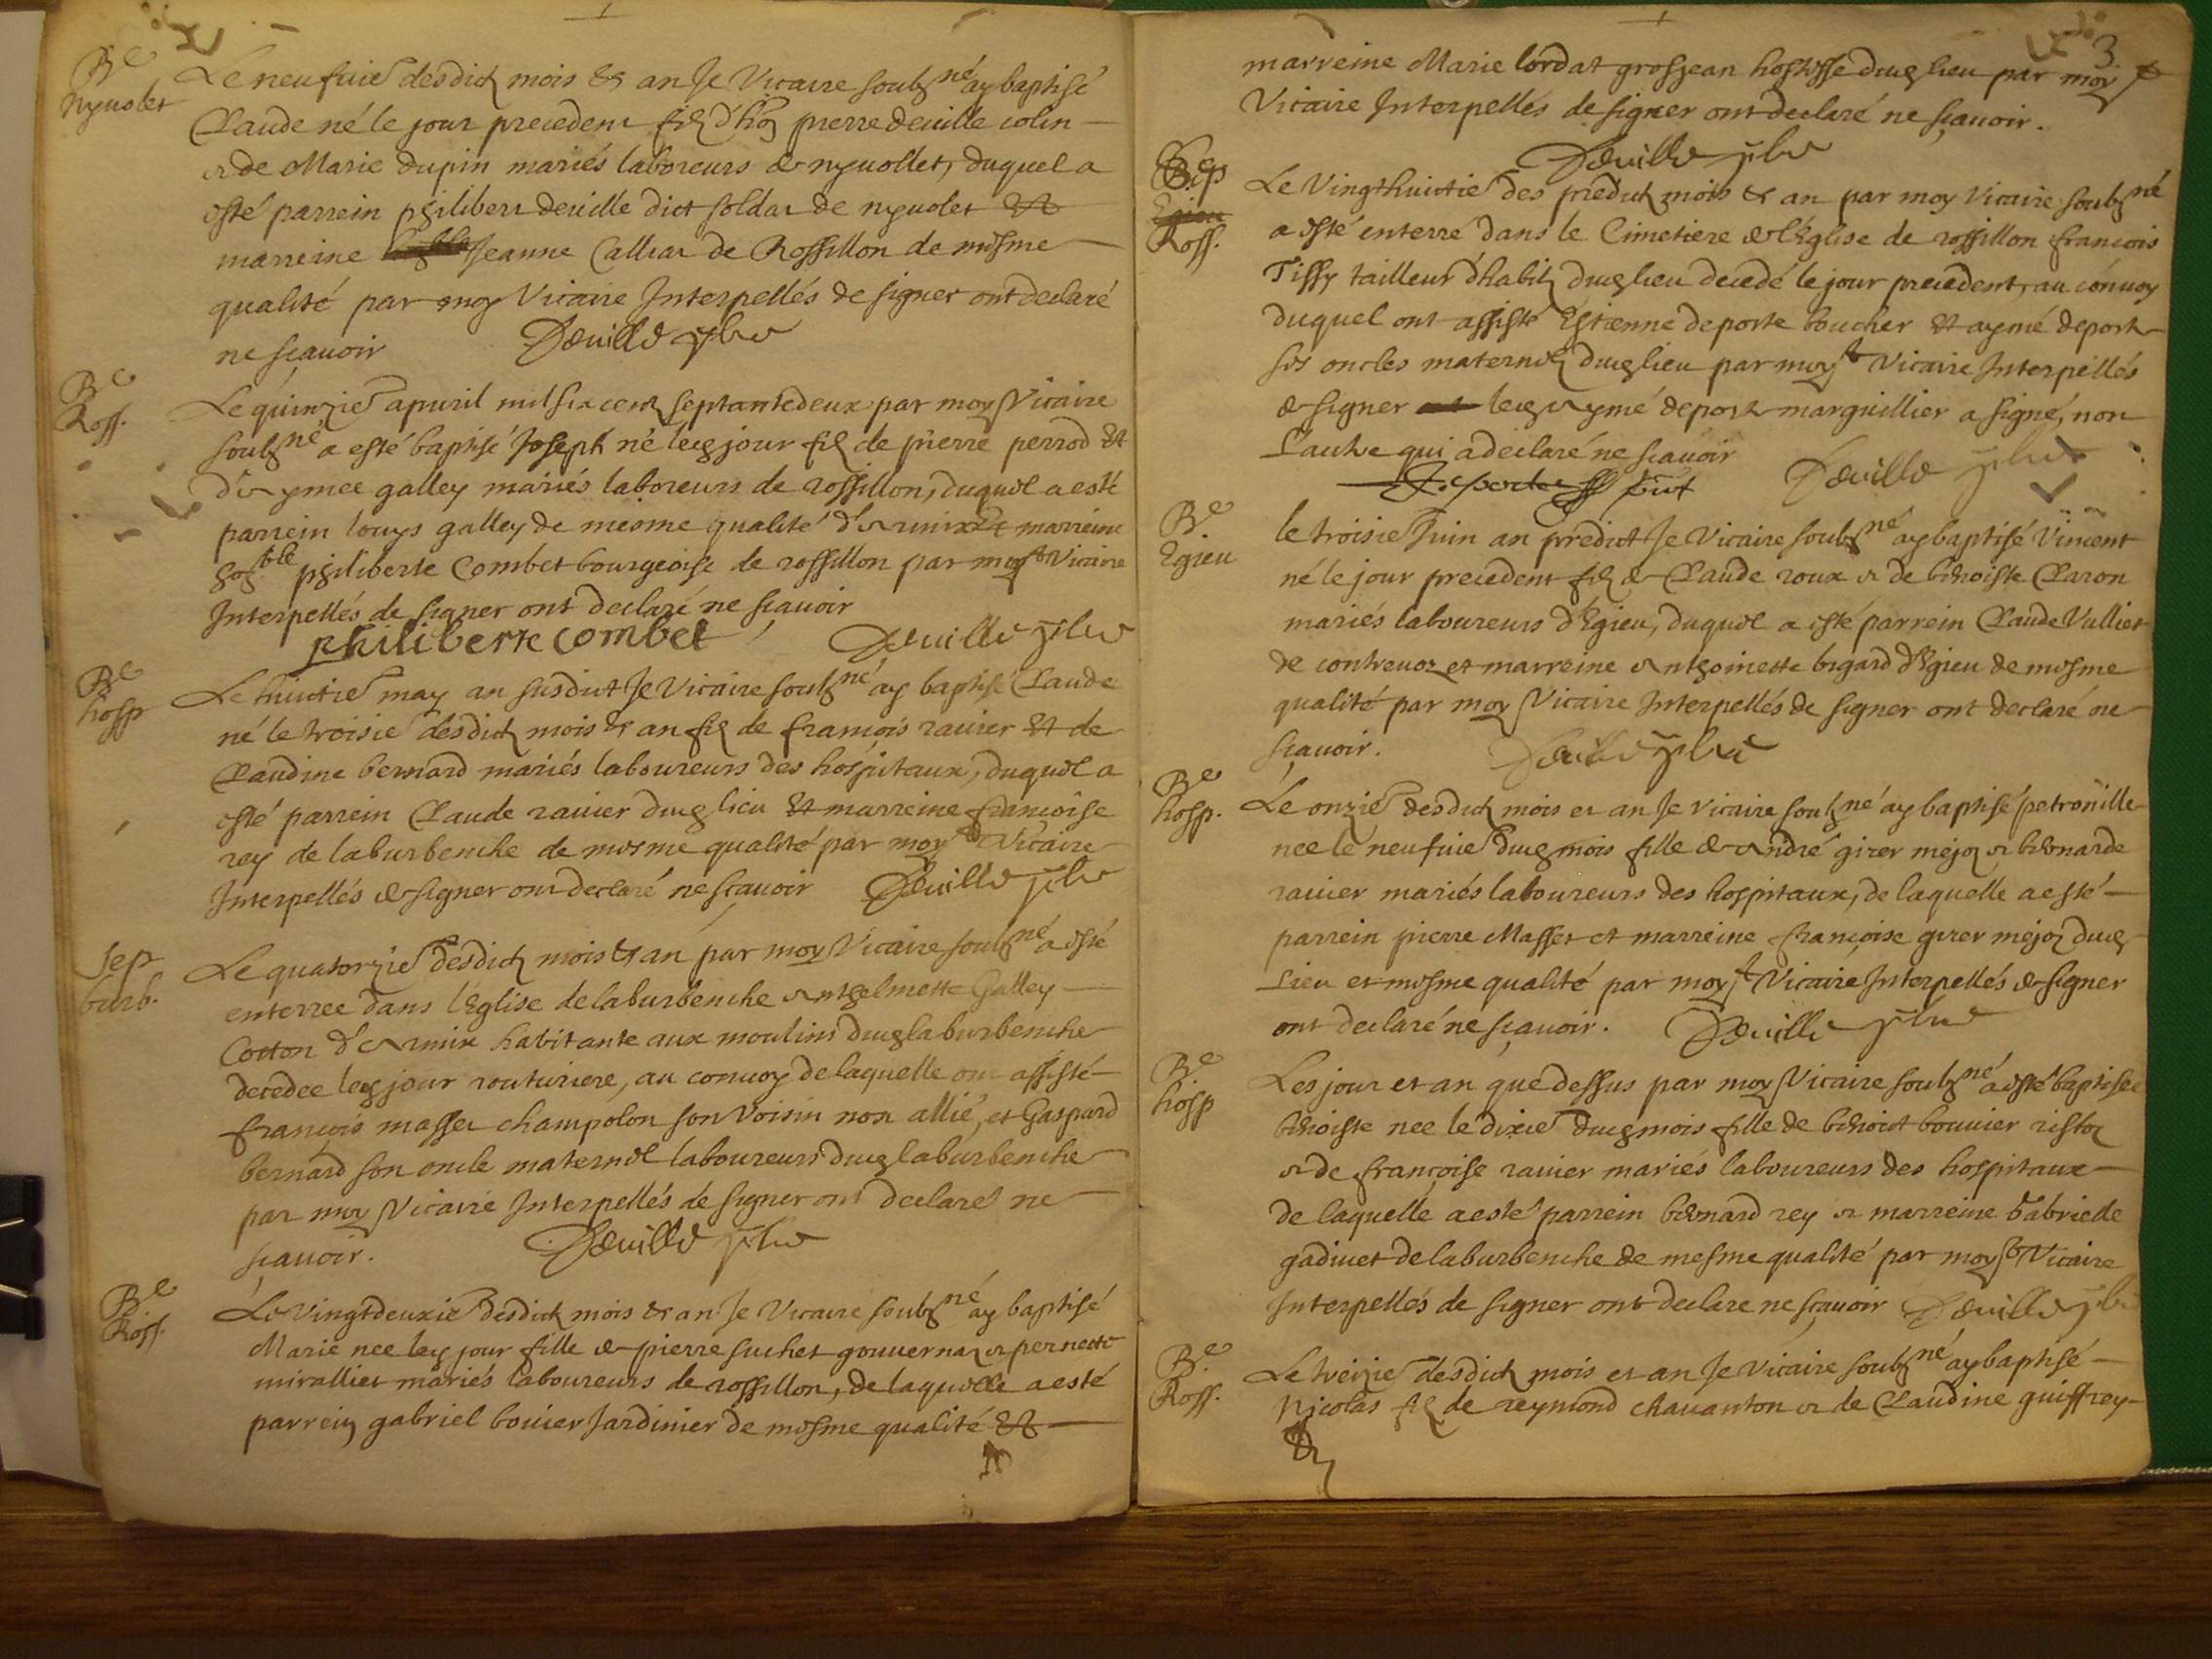 Be
nyuolet
Le neufuie desdicts mois et an Je Vicaire soubné ay baptisé
Claude né le jour precedent filz d'hon pierre deuille colin
et de Marie dupin mariés laboreurs de nyuollet, duquel a
esté parrein philibert deuille dict soldat de nyuolet et
marreine Jeanne Calliat de Rossillon de mesme
qualité par moy Vicaire Interpellés de signer ont declaré
ne sçauoir Deuille pbre
Be
Ross.
Le quinzie apuril mil six cent septante deux par moy Vicaire
soubné a esté baptisé Joseph né led jour filz de pierre perrod et
d'Aymee galley mariés laboreurs de rossillon, duquel a esté
parrein louys galley de mesme qualité d'Armix et marreine
hoble philiberte Combet bourgeoise de rossillon par moy st Vicaire
Interpellés de signer ont declaré ne sçauoir
philiberte combet Deuille pbre
Be
hosp
Le huictie may an susdict Je Vicaire soubné ay baptisé Claude
né le troisie desdicts mois et an filz de francois rauier et de
Claudine bernard mariés laboureurs des hospitaux, duquel a
esté parrein Claude rauier dud lieu et marreine francoise
rey de laburbenche de mesme qualité par moy st Vicaire
Interpellés de signer ont declaré ne sçauoir Deuille pbre
Sep
burb.
Le quatorzie desdicts mois et an par moy Vicaire soubné a esté
enterree dans l'Eglise de laburbenche Anthelmette Galley
Cotton d'Armix habitante aux moulins dud laburbenche
decedee led jour routuriere, au conuoy de laquelle ont assisté
francois masset champolon son Voisin non allié, et Gaspard
bernard son oncle maternel laboureurs dud laburbenche
par moy Vicaire Interpellés de signer ont declaré ne
sçauoir. Deuille pbre
Be
Ross.
Le Vingtdeuxie desdicts mois et an Je Vicaire soubné ay baptisé
Marie nee led jour fille de pierre suchet gouuernaz et pernette
mirallier mariés laboureurs de rossillon, de laquelle a esté
parrein gabriel bouier Jardinier de mesme qualité et
3.
marreine Marie lordat grosjean hostesse dud lieu par moy st
Vicaire Interpellés de signer ont declaré ne sçauoir.
Deuille pbre
Sep
Egieu
Ross.
Le Vingthuictie des predicts mois et an par moy Vicaire soubné
a esté enterré dans le Cimetiere de l'Eglise de rossillon francois
Tissy tailleur d'habitz dud lieu decedé le jour precedent, au conuoy
duquel ont assisté Estienne deporte boucher et aymé deporte
ses oncles maternelz dud lieu par moy st Vicaire Interpellés
de signer led Aymé deporte marguillier a signé, non
l'autre qui a declaré ne sçauoir Deuille pbre
Be
Egieu
le troisie Juin an predict Je Vicaire soubné ay baptisé Vincent
né le jour precedent filz de Claude roux et de benoiste Claron
mariés laboureurs d'Egieu, duquel a esté parrein Claude Vulliet
de contreuoz et marreine Anthoinette bigard d'Egieu de mesme
qualité par moy Vicaire Interpellés de signer ont declaré ne
sçauoir. Deuille pbre
Be
hosp.
Le onzie desdicts mois et an Je Vicaire soubné ay baptisé petronille
nee le neufuie dud mois fille de André girer mejoz et bernarde
rauier mariés laboureurs des hospitaux, de laquelle a esté
parrein pierre Masset et marreine françoise girer mejoz dud
Lieu et mesme qualité par moy st Vicaire Interpellés de signer
ont declaré ne sçauoir. Deuille pbre
Be
hosp
Les jour et an que dessus par moy Vicaire soubné a esté baptisee
benoiste nee le dixie dud mois fille de benoict bouuier ristoz
et de françoise rauier mariés laboureurs des hospitaux
de laquelle a esté parrein bernard rey et marreine Gabrielle
gadiuet de laburbenche de mesme qualité par moy st Vicaire
Interpellés de signer ont declaré ne sçauoir Deuille pbre
Be
Ross.
Le treizie desdicts mois et an Je Vicaire soubné ay baptisé
Nicolas filz de reymond chauanton et de Claudine guiffrey